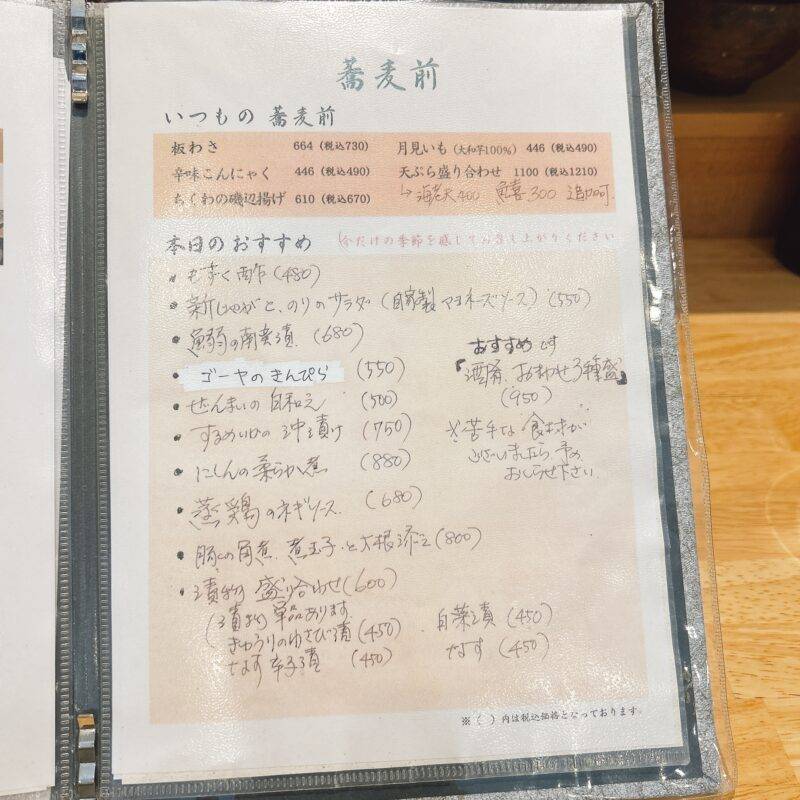 蕎麦前
いつもの 蕎麦前
板わさ 664 (税込730) 月見いも (大和芋100%) 446 (税込490)
辛味こんにゃく 446 (税込490) 天ぷら盛り合わせ 1100 (税込1210)
ちくわの磯辺揚げ 610 (税込670) 海老天400 300 追加可
本日のおすすめ 今だけの季節を感じてお召し上がりください
・もずく酢 (480)
・新じゃがと、のりのサラダ (自家製マヨネーズソース) (550)
・の南蛮漬 (680)
おすすめです
・ゴーヤのきんぴら (550) 「酒肴おまかせ3種盛」
(950)
・ぜんまいの白和え (500)
・するめいかの沖漬け (750) ※苦手な食材が
ございましたら予め
・にしんの柔らか煮 (880) おしらせ下さい
・蒸し鶏のネギソース (680)
・豚の角煮、煮玉子と大根添え (800)
・漬物 盛り合わせ (600)
(漬物 単品あります
きゅうりのわさび漬 (450) 白菜漬 (450)
なす辛子漬 (450) なす (450)
※( )内は税込価格となっております。